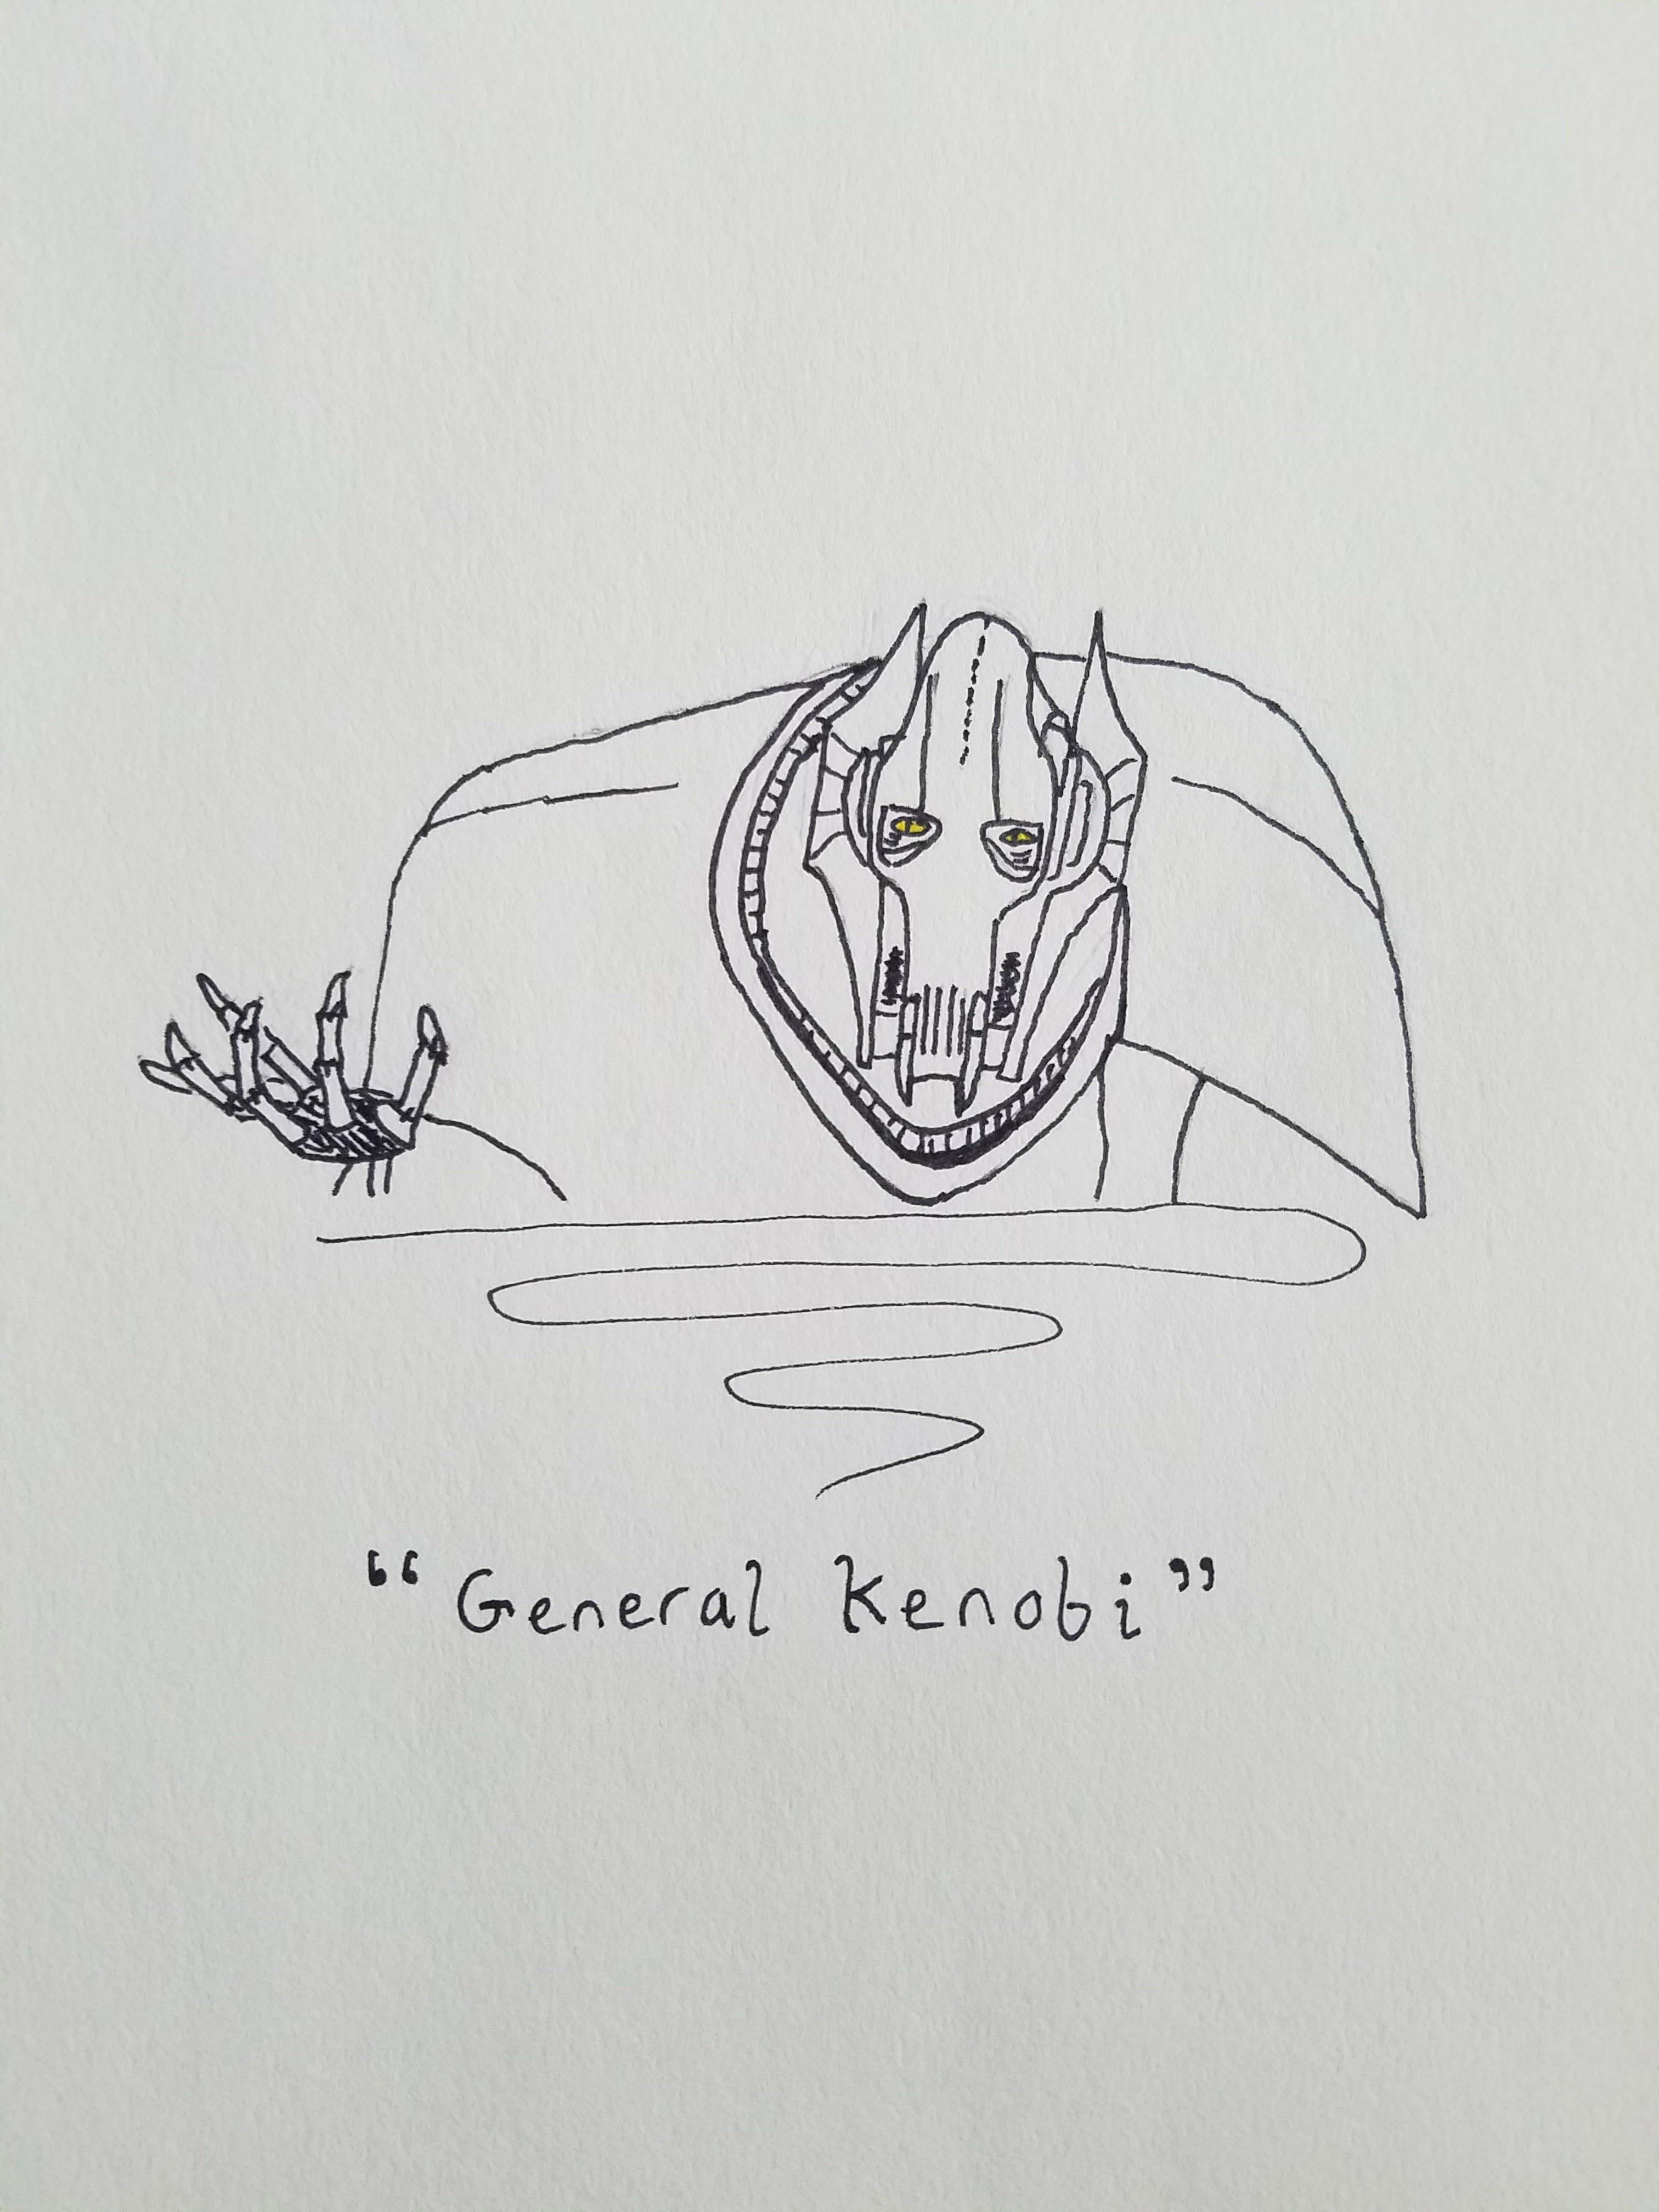 “General Kenobi”